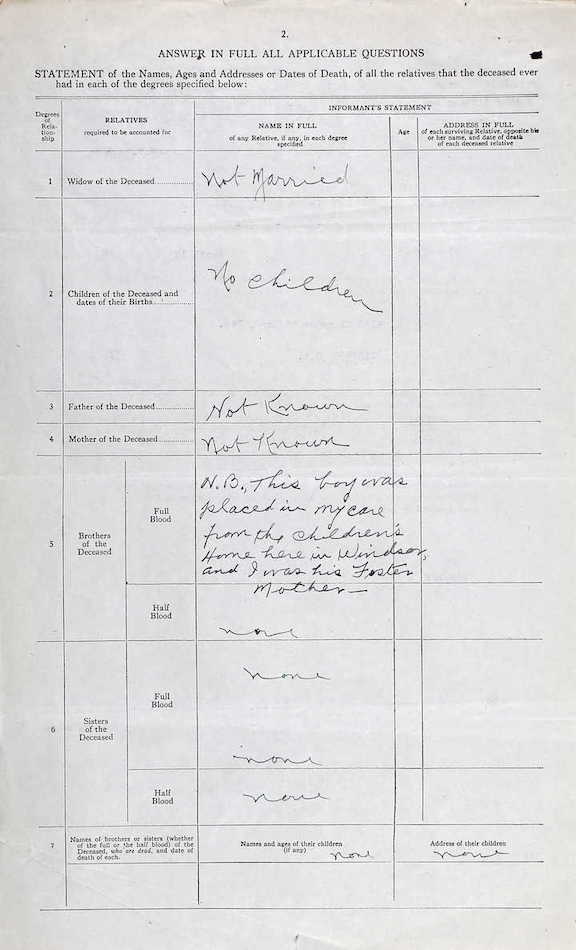 2.
ANSWER IN FULL ALL APPLICABLE QUESTIONS
STATEMENT of the Names, Ages and Addresses or Dates of Death, of all the relatives that the deceased ever
had in each of the degrees specified below:
Degrees
of
Rela-
tion-
ship
RELATIVES
required to be accounted for
INFORMANT'S STATEMENT
NAME IN FULL
of any Relative, if any, in each degree
specified
Age
ADDRESS IN FULL
of each surviving Relative, opposite his
or her name, and date of death
of each deceased relative
1 Widow of the Deceased
Not Married
2 Children of the Deceased and
dates of their Births
No Children
3 Father of the Deceased
Not Known
4 Mother of the Deceased
Not Known
5 Brothers
of the
Deceased
Full
Blood
N.B., This boy was
placed in my care
from the Children's
Home here in Windsor,
and I was his Foster
Mother
Half
Blood
none
6 Sisters
of the
Deceased
Full
Blood
none
none
Half
Blood
none
7 Names of brothers or sisters (whether
of the full or the half blood) of the
Deceased, who are dead, and date of
death of each.
Names and ages of their children
(if any)
none
Address of their children
none